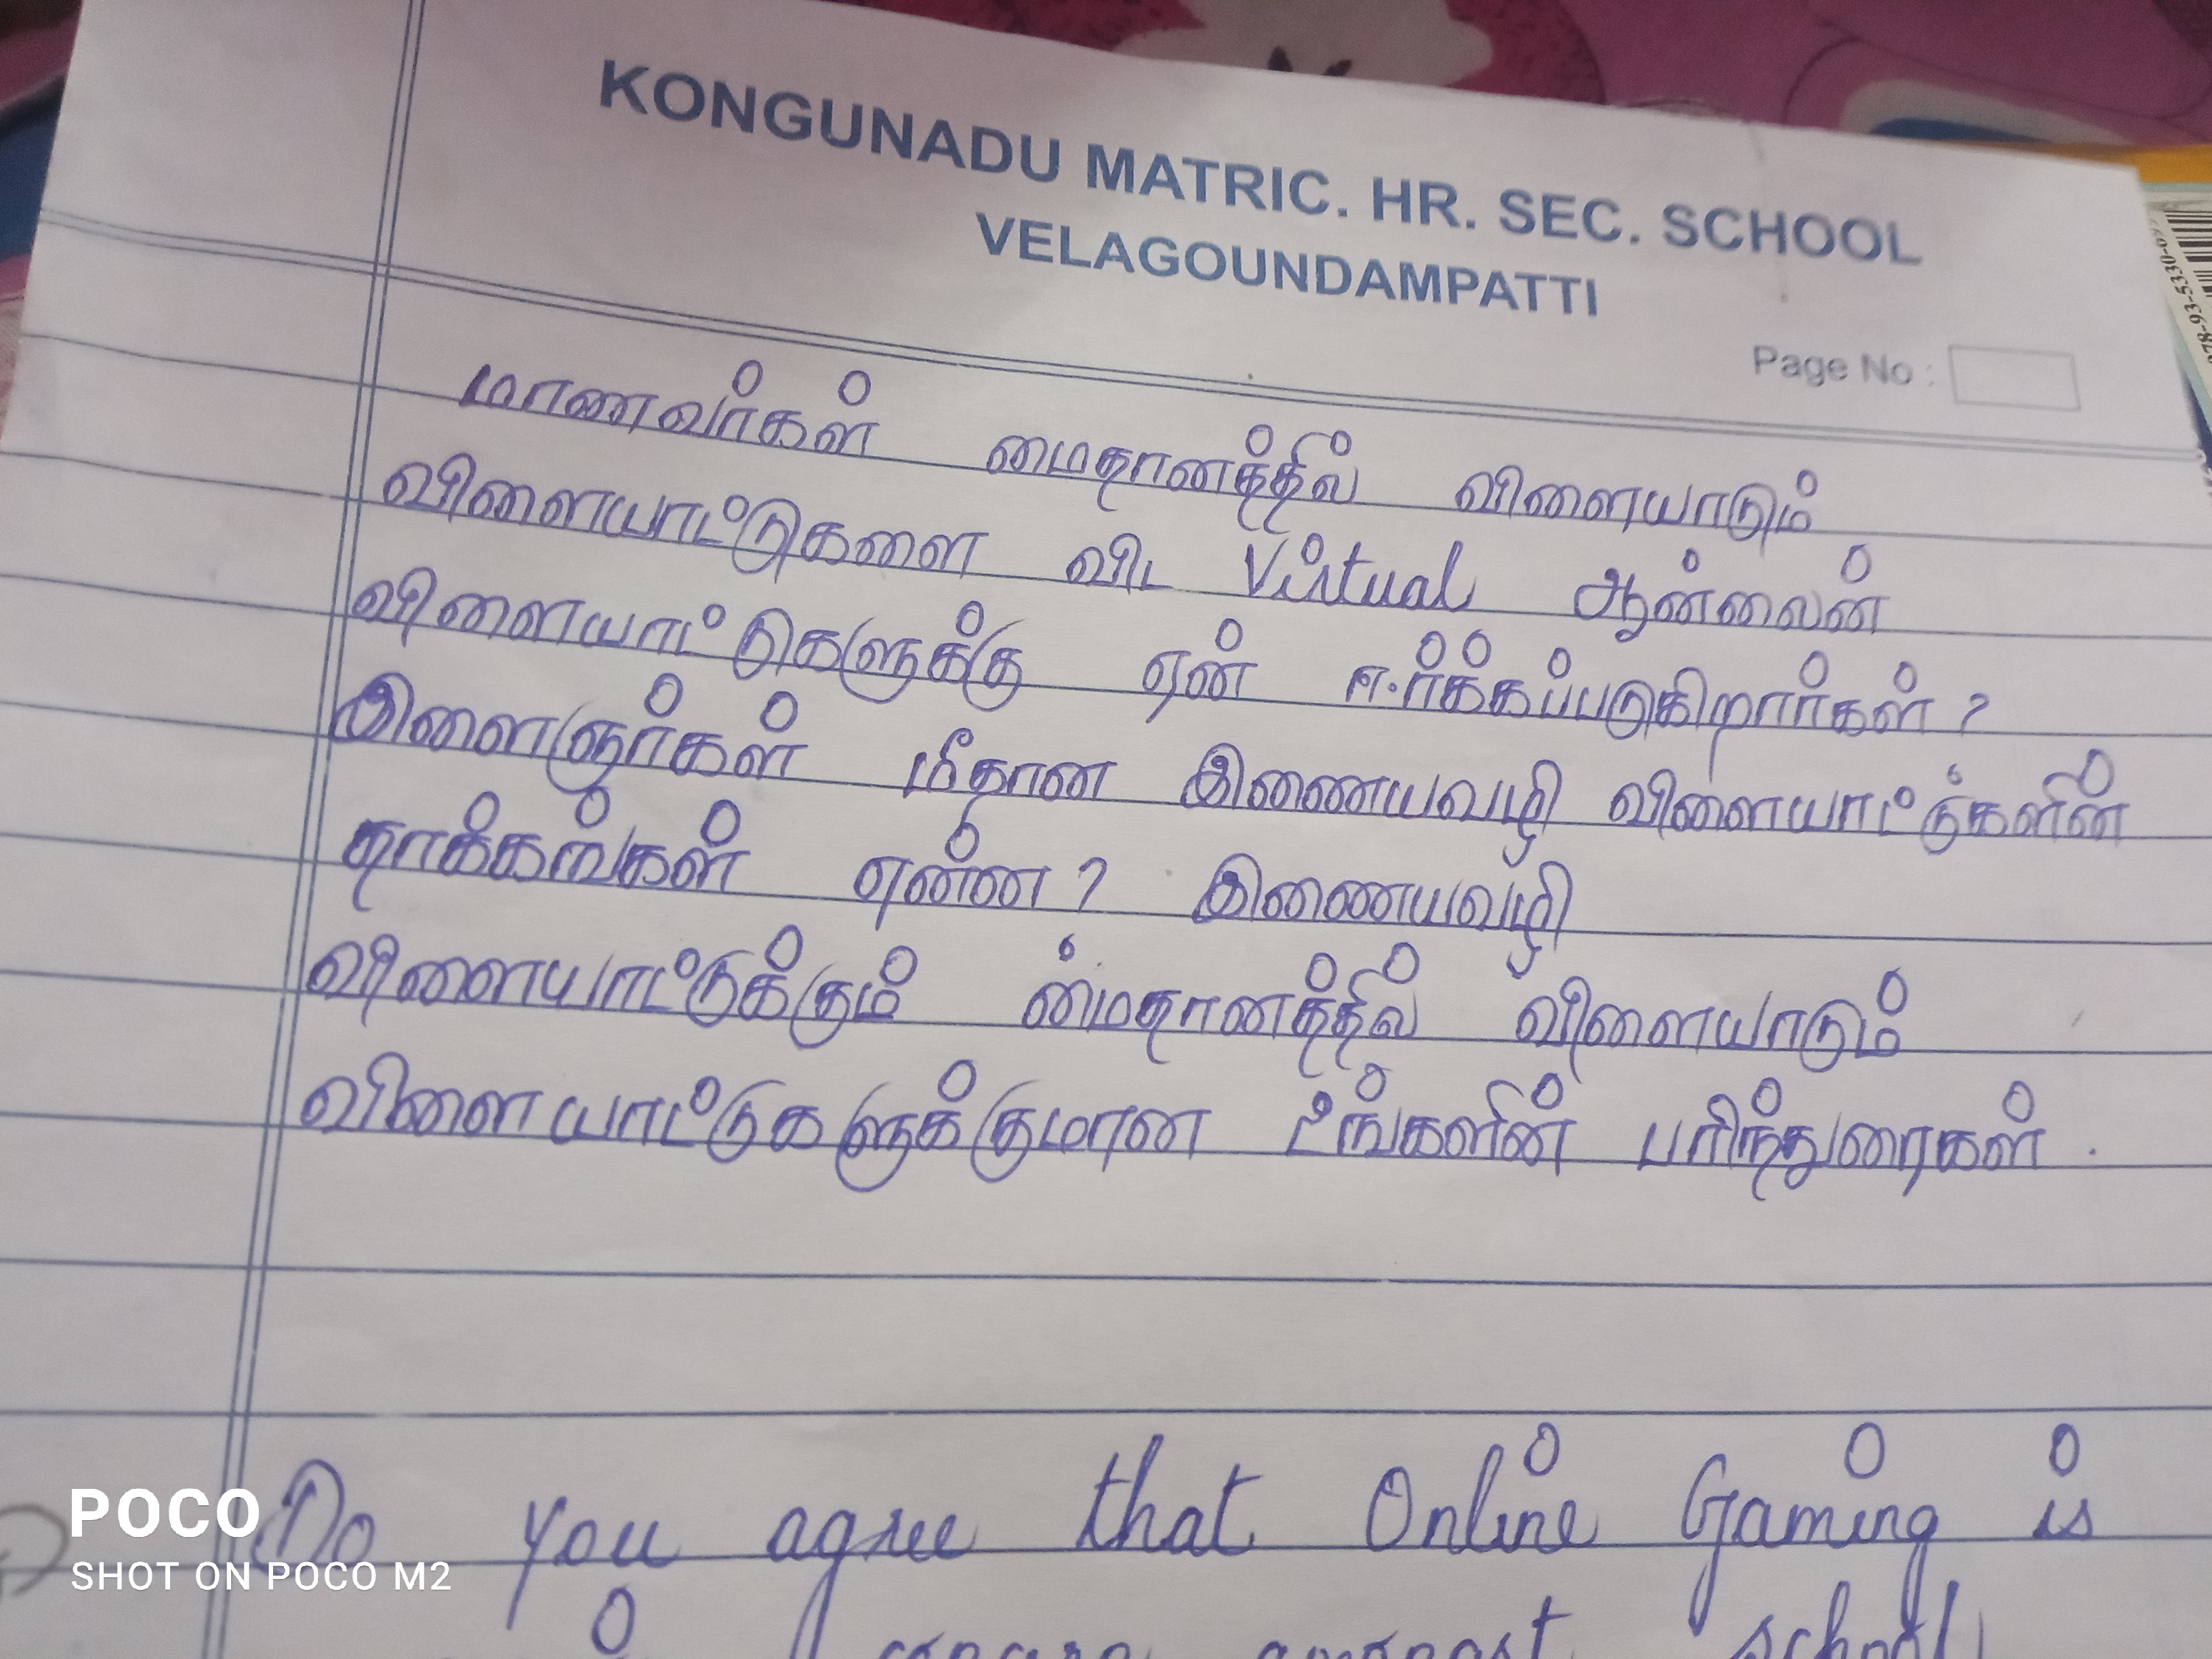 KONGUNADU MATRIC. HR. SEC. SCHOOL
VELAGOUNDAMPATTI
Page No :
மாணவர்கள் மைதானத்தில் விளையாடும்
விளையாட்டுகளை விட Virtual ஆன்லைன்
விளையாட்டுகளுக்கு ஏன் ஈர்க்கப்படுகிறார்கள் ?
இளைஞர்கள் மீதான இணையவழி விளையாட்டுகளின்
தாக்கங்கள் என்ன ? இணையவழி
விளையாட்டுக்கும் மைதானத்தில் விளையாடும்
விளையாட்டுகளுக்குமான உங்களின் பரிந்துரைகள் .
Do you agree that Online Gaming is
amongst school
POCO
SHOT ON POCO M2